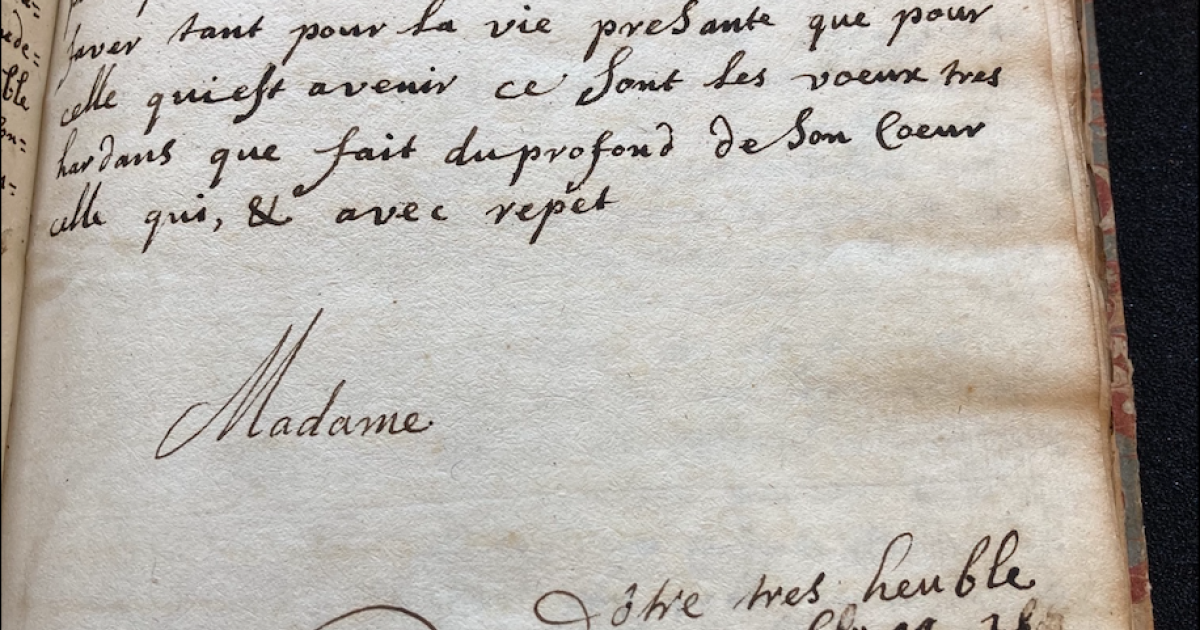 faver tant pour la vie presante que pour
celle quiest avenir ce sont les voeux tres
hardans que fait du profond de son Coeur
celle qui, & avec repêt
Madame
Vôtre tres heuble